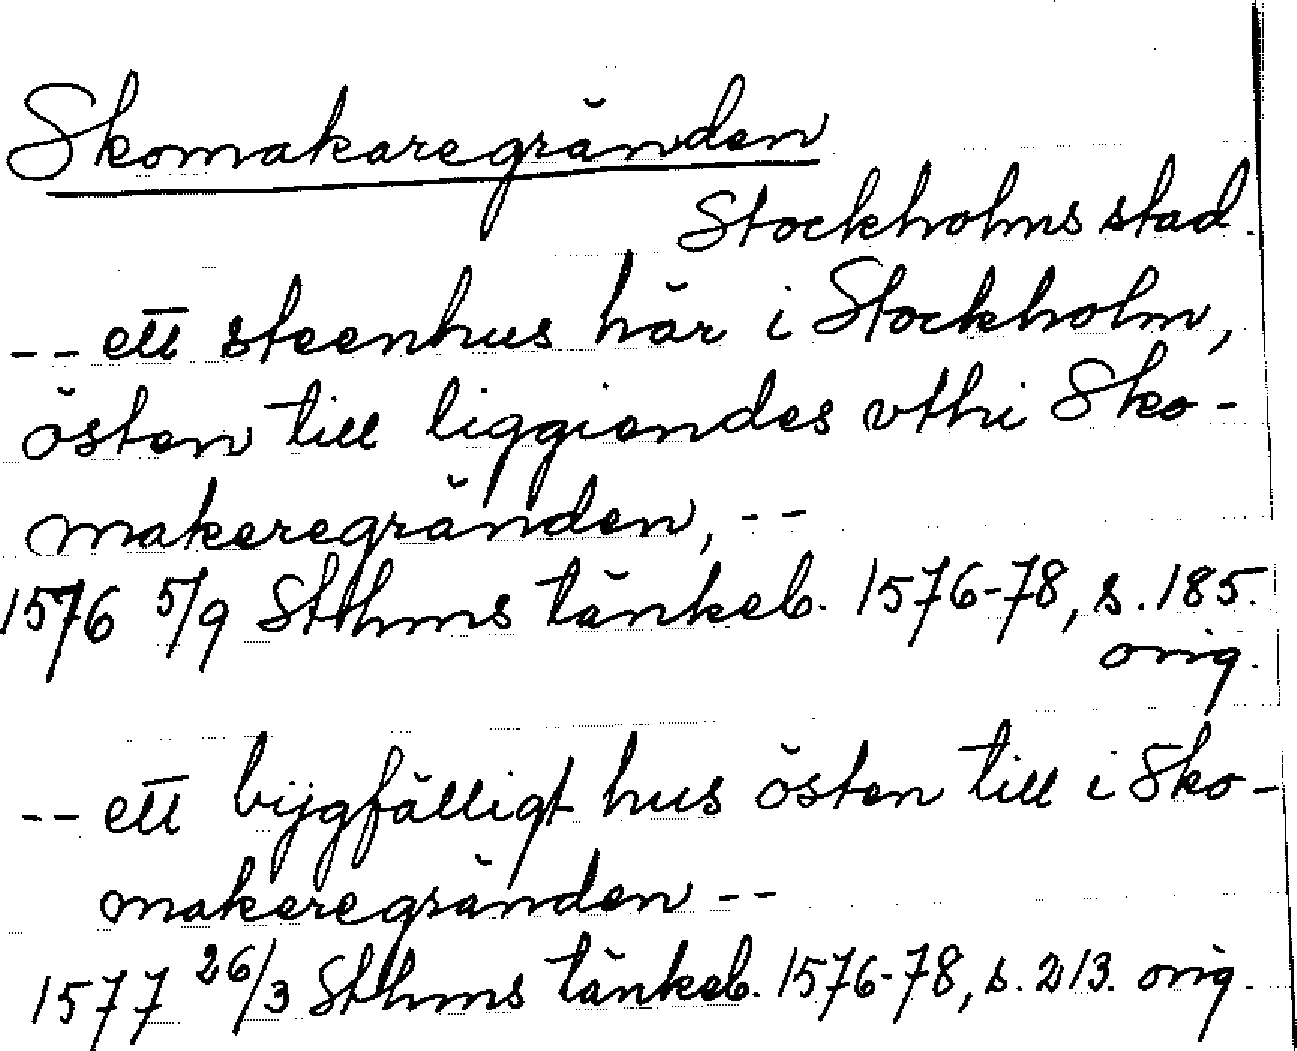 Skomakaregränden
Stockholms stad.
-- ett steenhus här i Stockholm,
östen till liggiendes vthi Sko-
makeregränden, --
1576 5/9 Sthms tänkeb. 1576-78, s. 185.
orig.
-- ett bygfälligt hus östen till i Sko-
makeregränden --
1577 26/3 Sthms tänkeb. 1576-78, s. 213. orig.